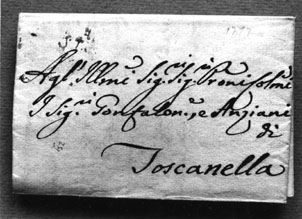 Agl' Illmi Sig.ri Sig.ri Proni Colmi
I Sig.ri Gonfalon.e, e Anziani
di
Toscanella